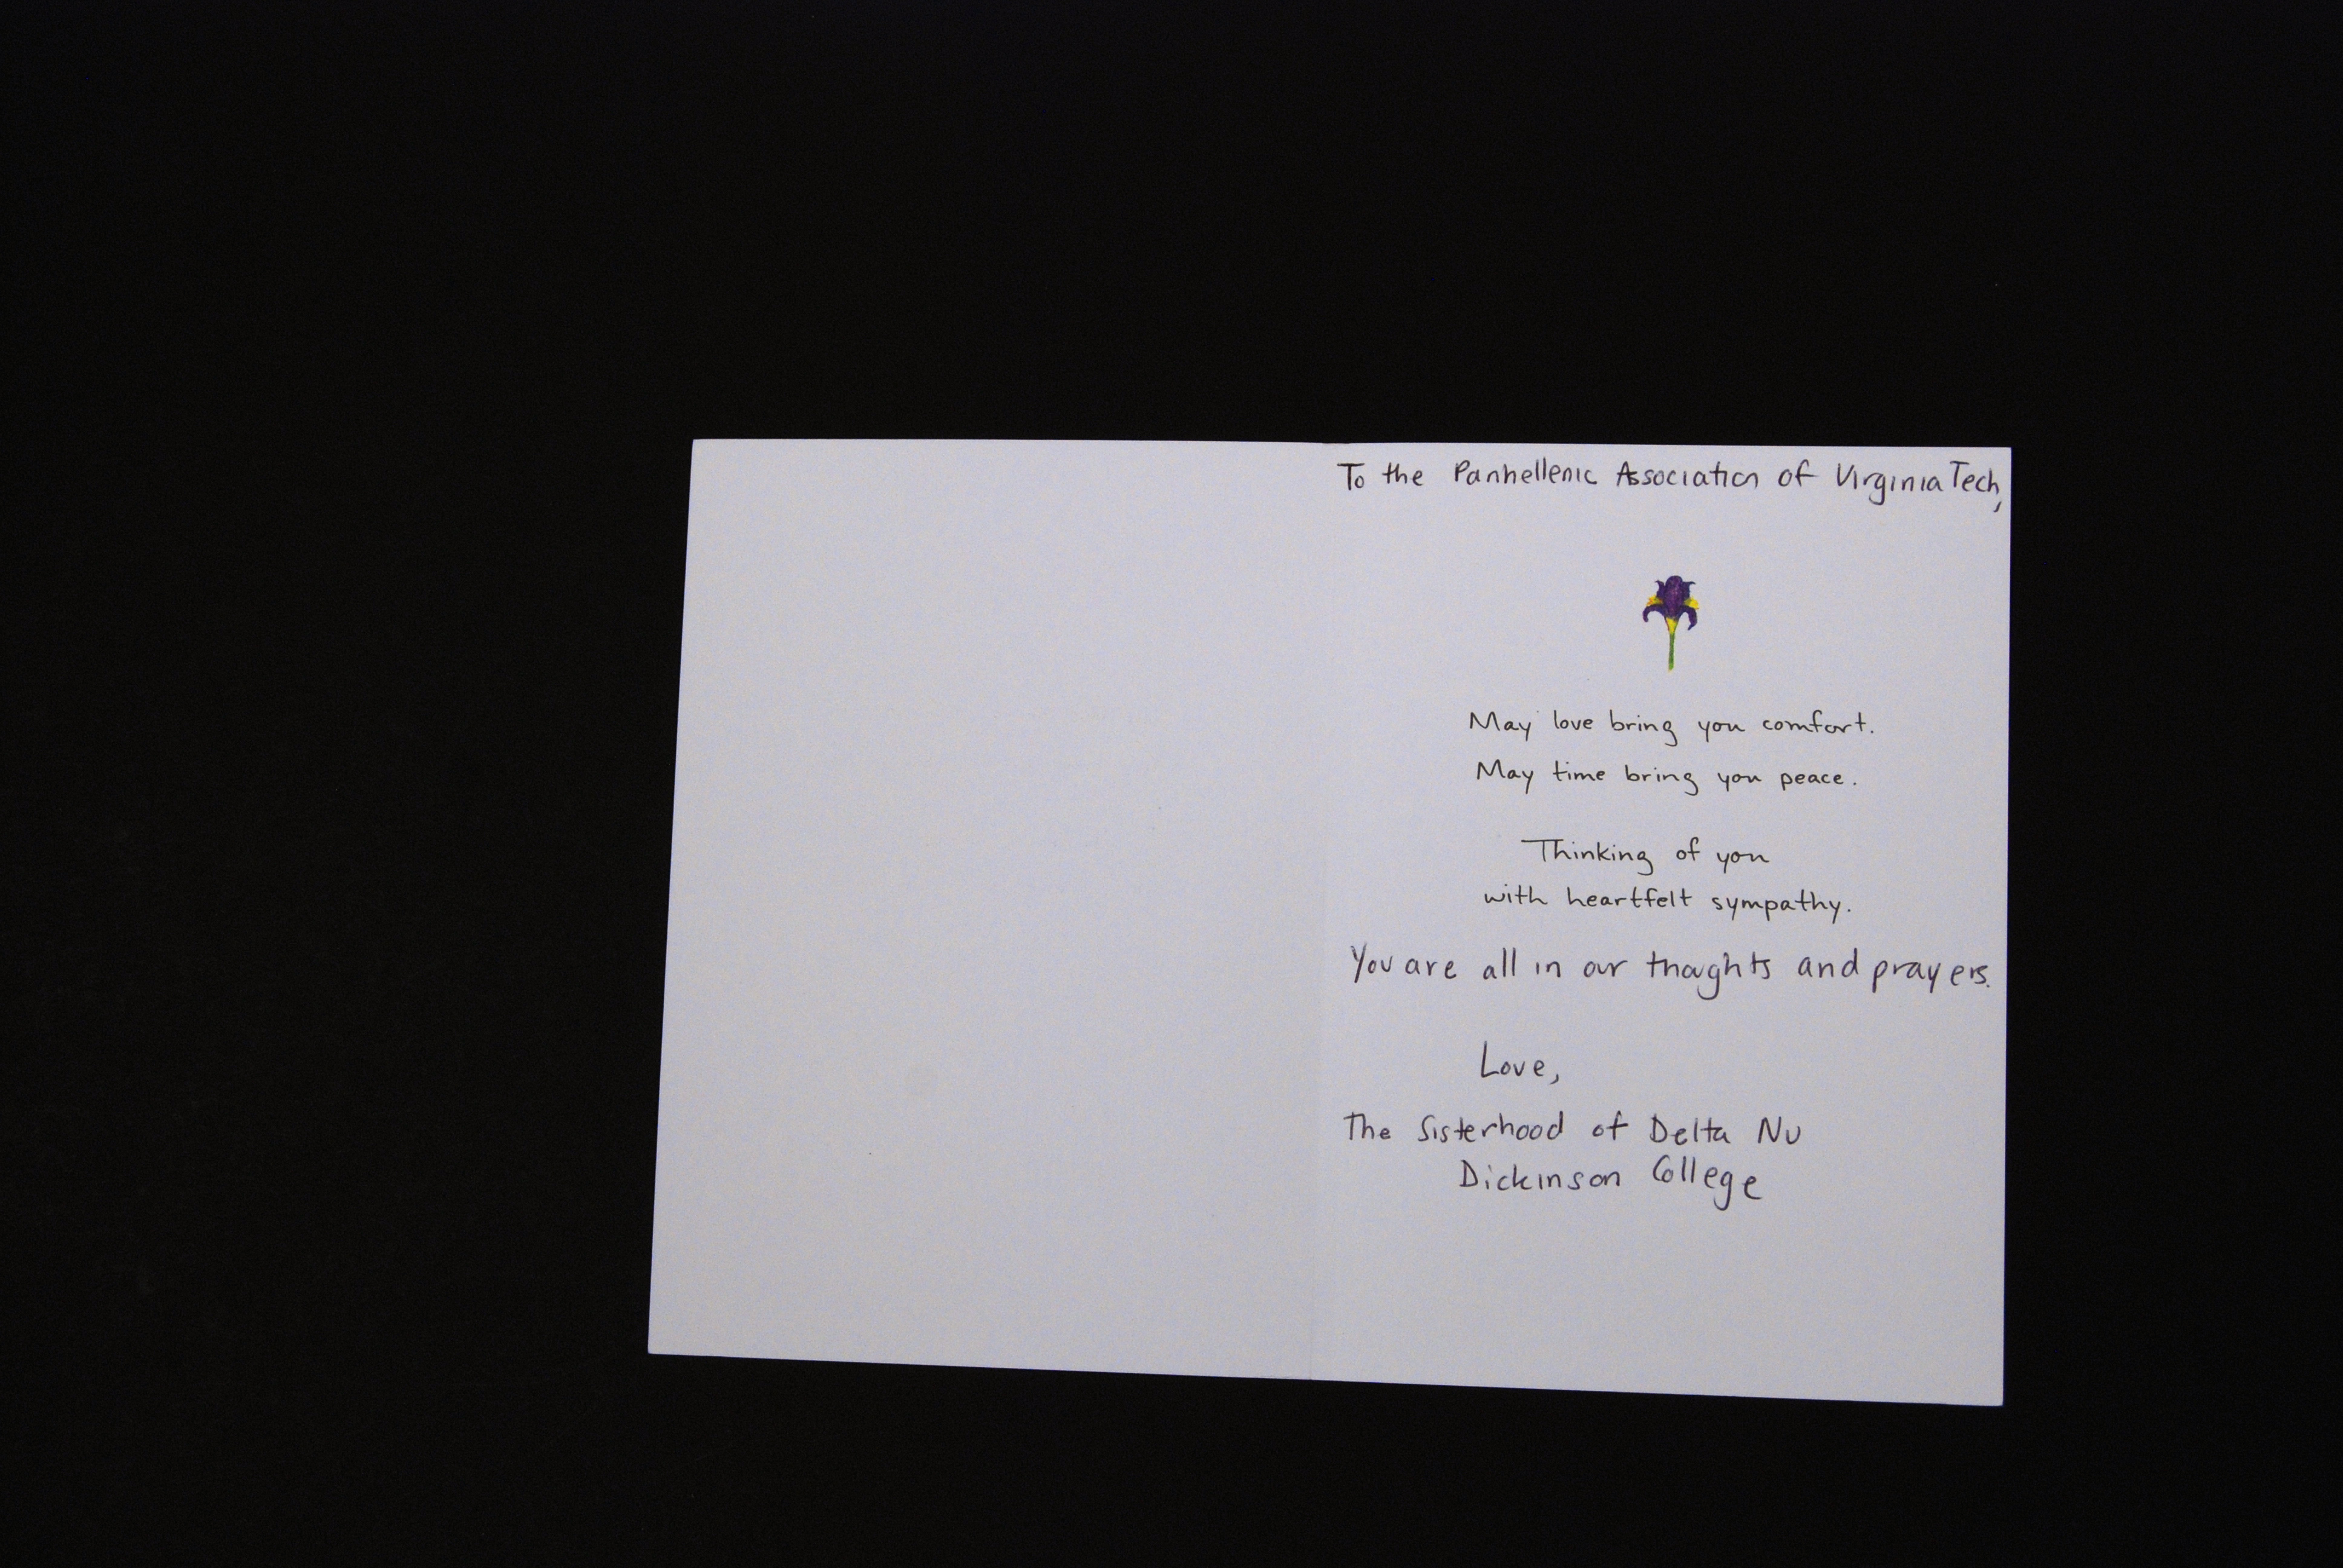 To the Panhellenic Association of Virginia Tech,
May love bring you comfort.
May time bring you peace.
Thinking of you
with heartfelt sympathy.
You are all in our thoughts and prayers.
Love,
The Sisterhood of Delta Nu
Dickinson College